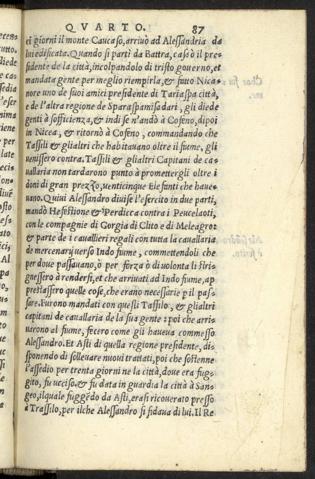 QVARTO. 87
ci giorni il monte Caucaso, arriuò ad Alessandria da
lui edificata. Quando si partì da Battra, cassò il pre-
sidente de la città, incolpandolo di tristo gouerno, et
mandata gente per meglio riempirla, & fatto Nica-
nore uno de suoi amici presidente di Tariaspa città,
e de l'altra regione de Sparaspamisadari, gli diede
genti à sofficienza, & indi se n'andò à Cofeno, dipoi
in Nicea, & ritornò à Cofeno, commandando che
Tassili & gli altri che habitauano oltre il fiume, gli
uenissero contra. Tassili & gli altri Capitani de ca-
uallaria non tardarono punto à promettergli oltre i
doni di gran prezzo, uenticinque Elefanti che haue-
uano. Quiui Alessandro diuise l'esercito in due parti,
mandò Hefestione & Perdicca contra i Peucelaoti,
con le compagnie di Gorgia di Clito e di Meleagro:
& parte de i cauallieri regali con tutta la cauallaria
de mercenarij uerso Indo fiume, commettendoli che
per doue passauano, ò per forza ò di uolonta li stri-
gnessero à rendersi, et che arriuati ad Indo fiume, ap
prestassero quelle cose, che erano necessarie p il pas-
sare. Furono mandati con questi Tassilo, & gli altri
capitani de cauallaria de la sua gente: poi che arri-
uorono al fiume, fecero come gli haueua commesso
Alessandro. Et Asti di quella regione presidente, di-
sponendo di solleuare nuoui trattati, poi che sostenne
l'assedio per trenta giorni ne la città, doue era fug-
gito, fu ucciso, & fu data in guardia la città à San-
geo, ilquale fuggēdo da Asti, erasi ricouerato presso
à Trassilo, per ilche Alessandro si fidaua di lui. Il Re